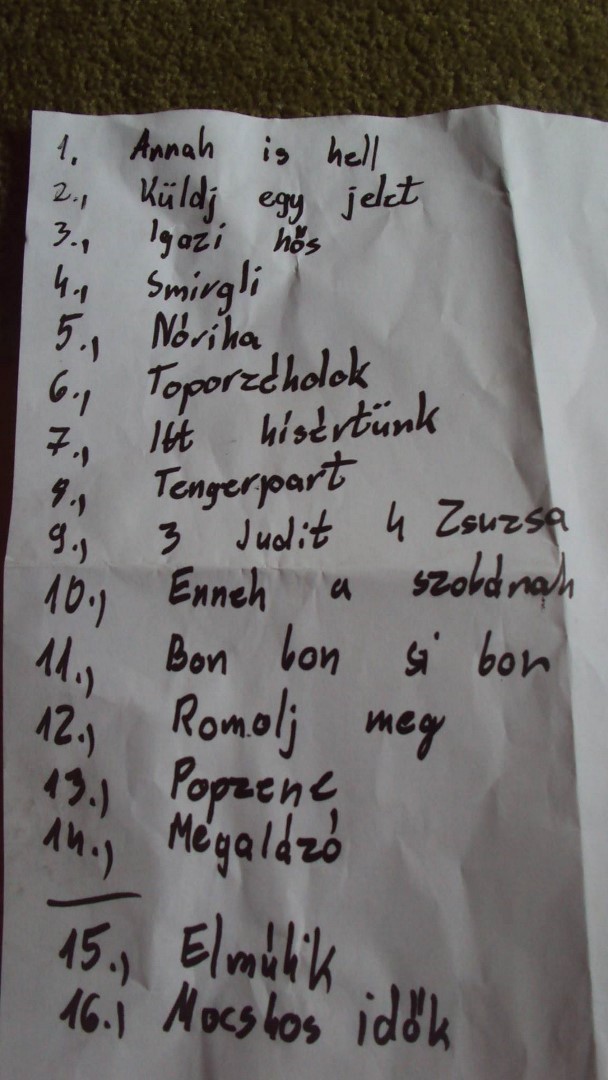 1. Annah is hell
2., Küldj egy jelt
3., Igazi hős
4., Smirgli
5., Nórika
6., Toporzékolok
7., Itt kisértünk
8., Tengerpart
9., 3 Judit 4 Zsuzsa
10., Ennek a szobának
11., Bon bon si bon
12., Romolj meg
13., Popzene
14., Megalázó
15., Elmúlik
16., Mocskos idők